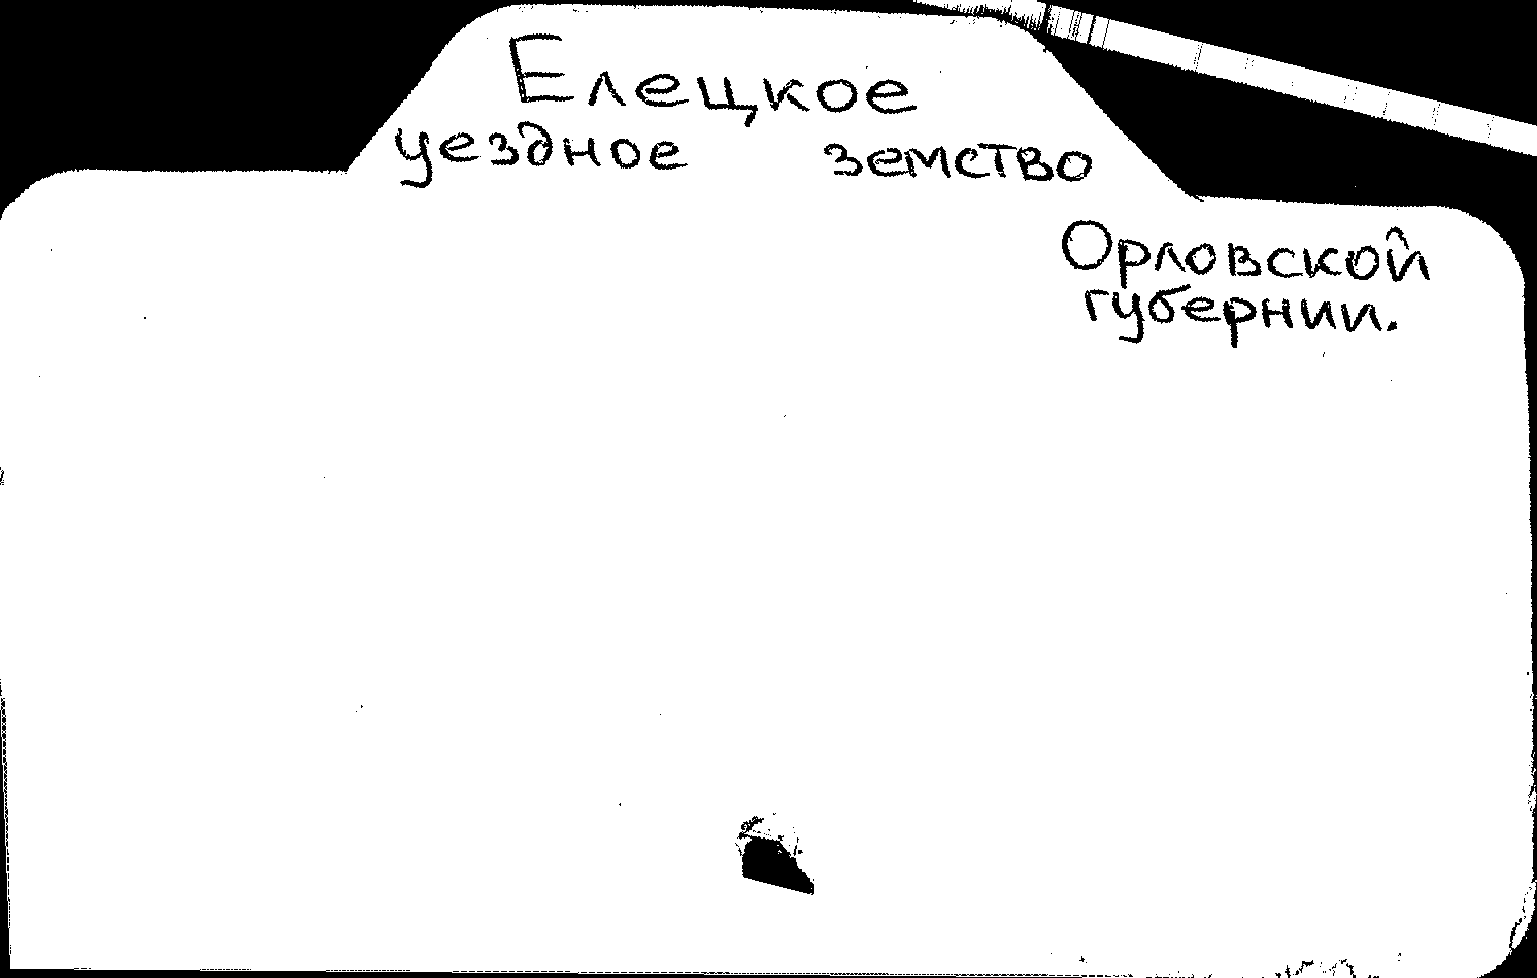 Елецкое
уездное земство
Орловской
губернии.